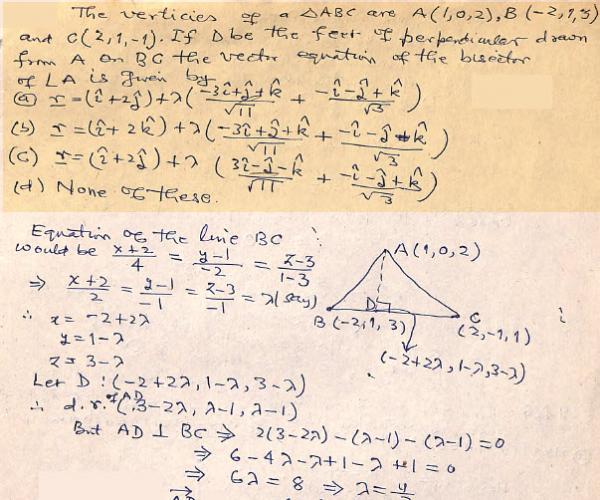 The verticies of a △ABC are A(1,0,2), B(-2,1,3)
and C(2,1,-1). If D be the feet of perpendicular drawn
from A on BC the vector equation of the bisector
of ∠A is given by
(a) r = (î+2ĵ)+λ(-3î+ĵ+k̂/√11 + -î-ĵ+k̂/√3)
(b) r = (î+2k̂)+λ(-3î+ĵ+k̂/√11 + -î-ĵ+k̂/√3)
(c) r = (î+2ĵ)+λ (3î-ĵ-k̂/√11 + -î-ĵ+k̂/√3)
(d) None of these.
Equation of the line BC
would be x+2/4 = y-1/-2 = z-3/1-3
⇒ x+2/2 = y-1/-1 = z-3/-1 = λ(say)
∴ x = -2+2λ
y = 1-λ
z = 3-λ
Let D : (-2+2λ, 1-λ, 3-λ)
∴ d.r. of AD (3-2λ, λ-1, λ-1)
But AD ⊥ BC ⇒ 2(3-2λ)-(λ-1)-(λ-1)=0
⇒ 6-4λ-λ+1-λ+1=0
⇒ 6λ = 8 ⇒ λ = 4/
A(1,0,2)
D
B(-2,1,3)
C
(2,-1,1)
(-2+2λ, 1-λ, 3-λ)